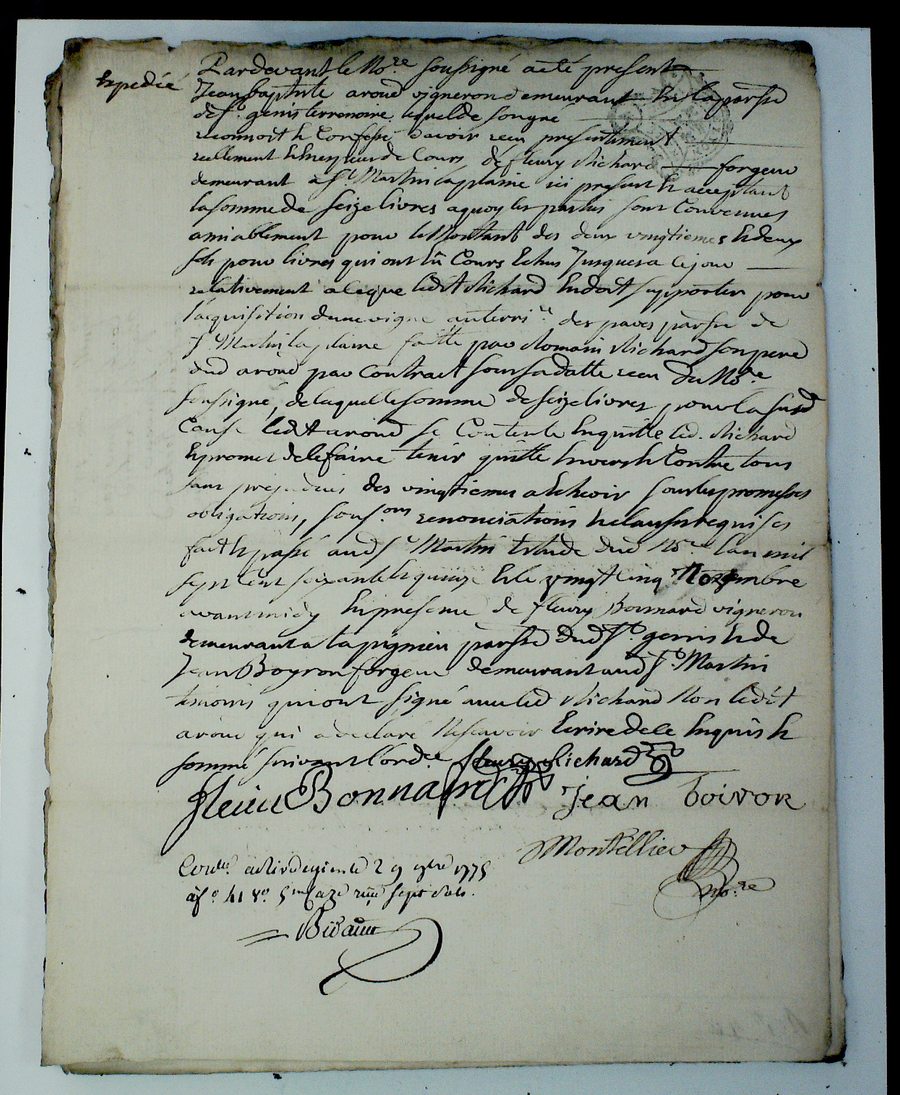 Expedié
Pardevant le No.re soussigné a eté present
Jean baptiste aroud vigneron demeurant en la parsse
de St. genis terrenoire lequel de son gré
reconnoit et Confesse d'avoir reçu presentiment
reellement et en de Cours de fleury Richard forgeur
demeurant a St. Martin la plaine ici present et acceptant
la somme de seize livres a quoy les parties sont Convenues
amiablement pour le Montant des deux vingtiemes et deux
sols pour livres qui ont eû Cours Echus Jusques a ce jour
relativement a ce que ledit Richard en doit supporter pour
l'acquisition d'une vigne au terri.re des paves parsse de
St. Martin la plaine faitte par Romain Richard son pere
dud aroud par Contract sous sa datte reçu du No.re
soussigné, de laquelle somme de seize livres pour la susd
Cause ledit aroud se Contente en quitte led. Richard
Et promet de le faire tenir quitte Envers et Contre tous
sans prejudice des vingtiemes a Echeoir sous les promesses
obligations, renonciations et clauses requises
fait et passé aud St. Martin Etude dud No.re l'an mil
sept cent soixante et quinze et le vingt cinq Novembre
avant midy En presence de fleury Bonnard vigneron
demeurant a parsse dud St. genis et de
Jean Boyron forgeur demeurant aud St. Martin
temoins qui ont signé avec led Richard Non ledit
aroud qui a declaré Ne scavoir Ecrire de ce Enquis et
sommé suivant l'ord.ce fleury Richard
fleury Bonnard Jean boiron
Montellier
No.re
Con.llé a Rivedegier le 29 9bre 1775
a fo. 41 vo. 5.me Caze reçu sept sols.